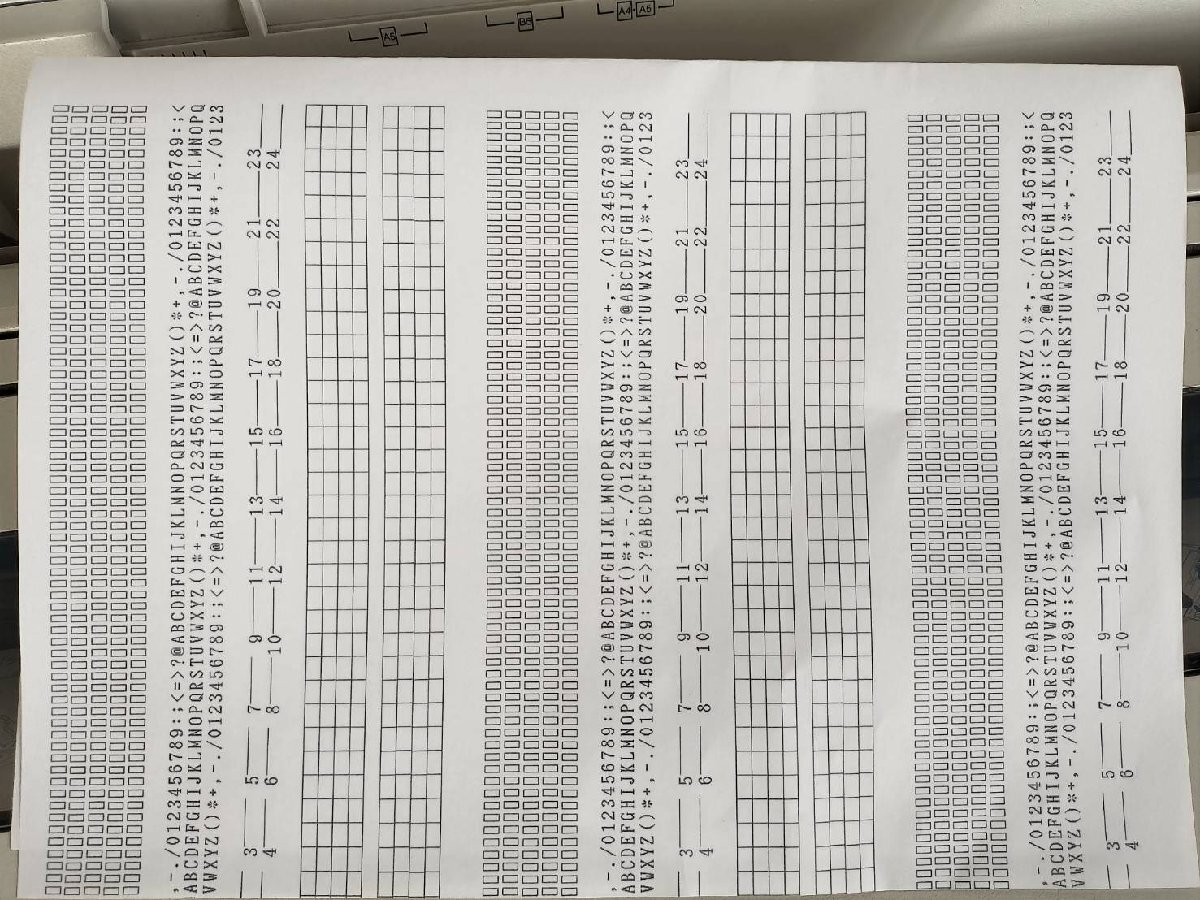 A5
B5
A4·A5
,-./0123456789:;<=>?@ABCDEFGHIJKLMNOPQRSTUVWXYZ()*+,-./0123456789:;<
ABCDEFGHIJKLMNOPQRSTUVWXYZ()*+,-./0123456789:;<=>?@ABCDEFGHIJKLMNOPQ
VWXYZ()*+,-./0123456789:;<=>?@ABCDEFGHIJKLMNOPQRSTUVWXYZ()*+,-./0123
3 5 7 9 11 13 15 17 19 21 23
4 6 8 10 12 14 16 18 20 22 24
,-./0123456789:;<=>?@ABCDEFGHIJKLMNOPQRSTUVWXYZ()*+,-./0123456789:;<
ABCDEFGHIJKLMNOPQRSTUVWXYZ()*+,-./0123456789:;<=>?@ABCDEFGHIJKLMNOPQ
VWXYZ()*+,-./0123456789:;<=>?@ABCDEFGHIJKLMNOPQRSTUVWXYZ()*+,-./0123
3 5 7 9 11 13 15 17 19 21 23
4 6 8 10 12 14 16 18 20 22 24
,-./0123456789:;<=>?@ABCDEFGHIJKLMNOPQRSTUVWXYZ()*+,-./0123456789:;<
ABCDEFGHIJKLMNOPQRSTUVWXYZ()*+,-./0123456789:;<=>?@ABCDEFGHIJKLMNOPQ
VWXYZ()*+,-./0123456789:;<=>?@ABCDEFGHIJKLMNOPQRSTUVWXYZ()*+,-./0123
3 5 7 9 11 13 15 17 19 21 23
4 6 8 10 12 14 16 18 20 22 24